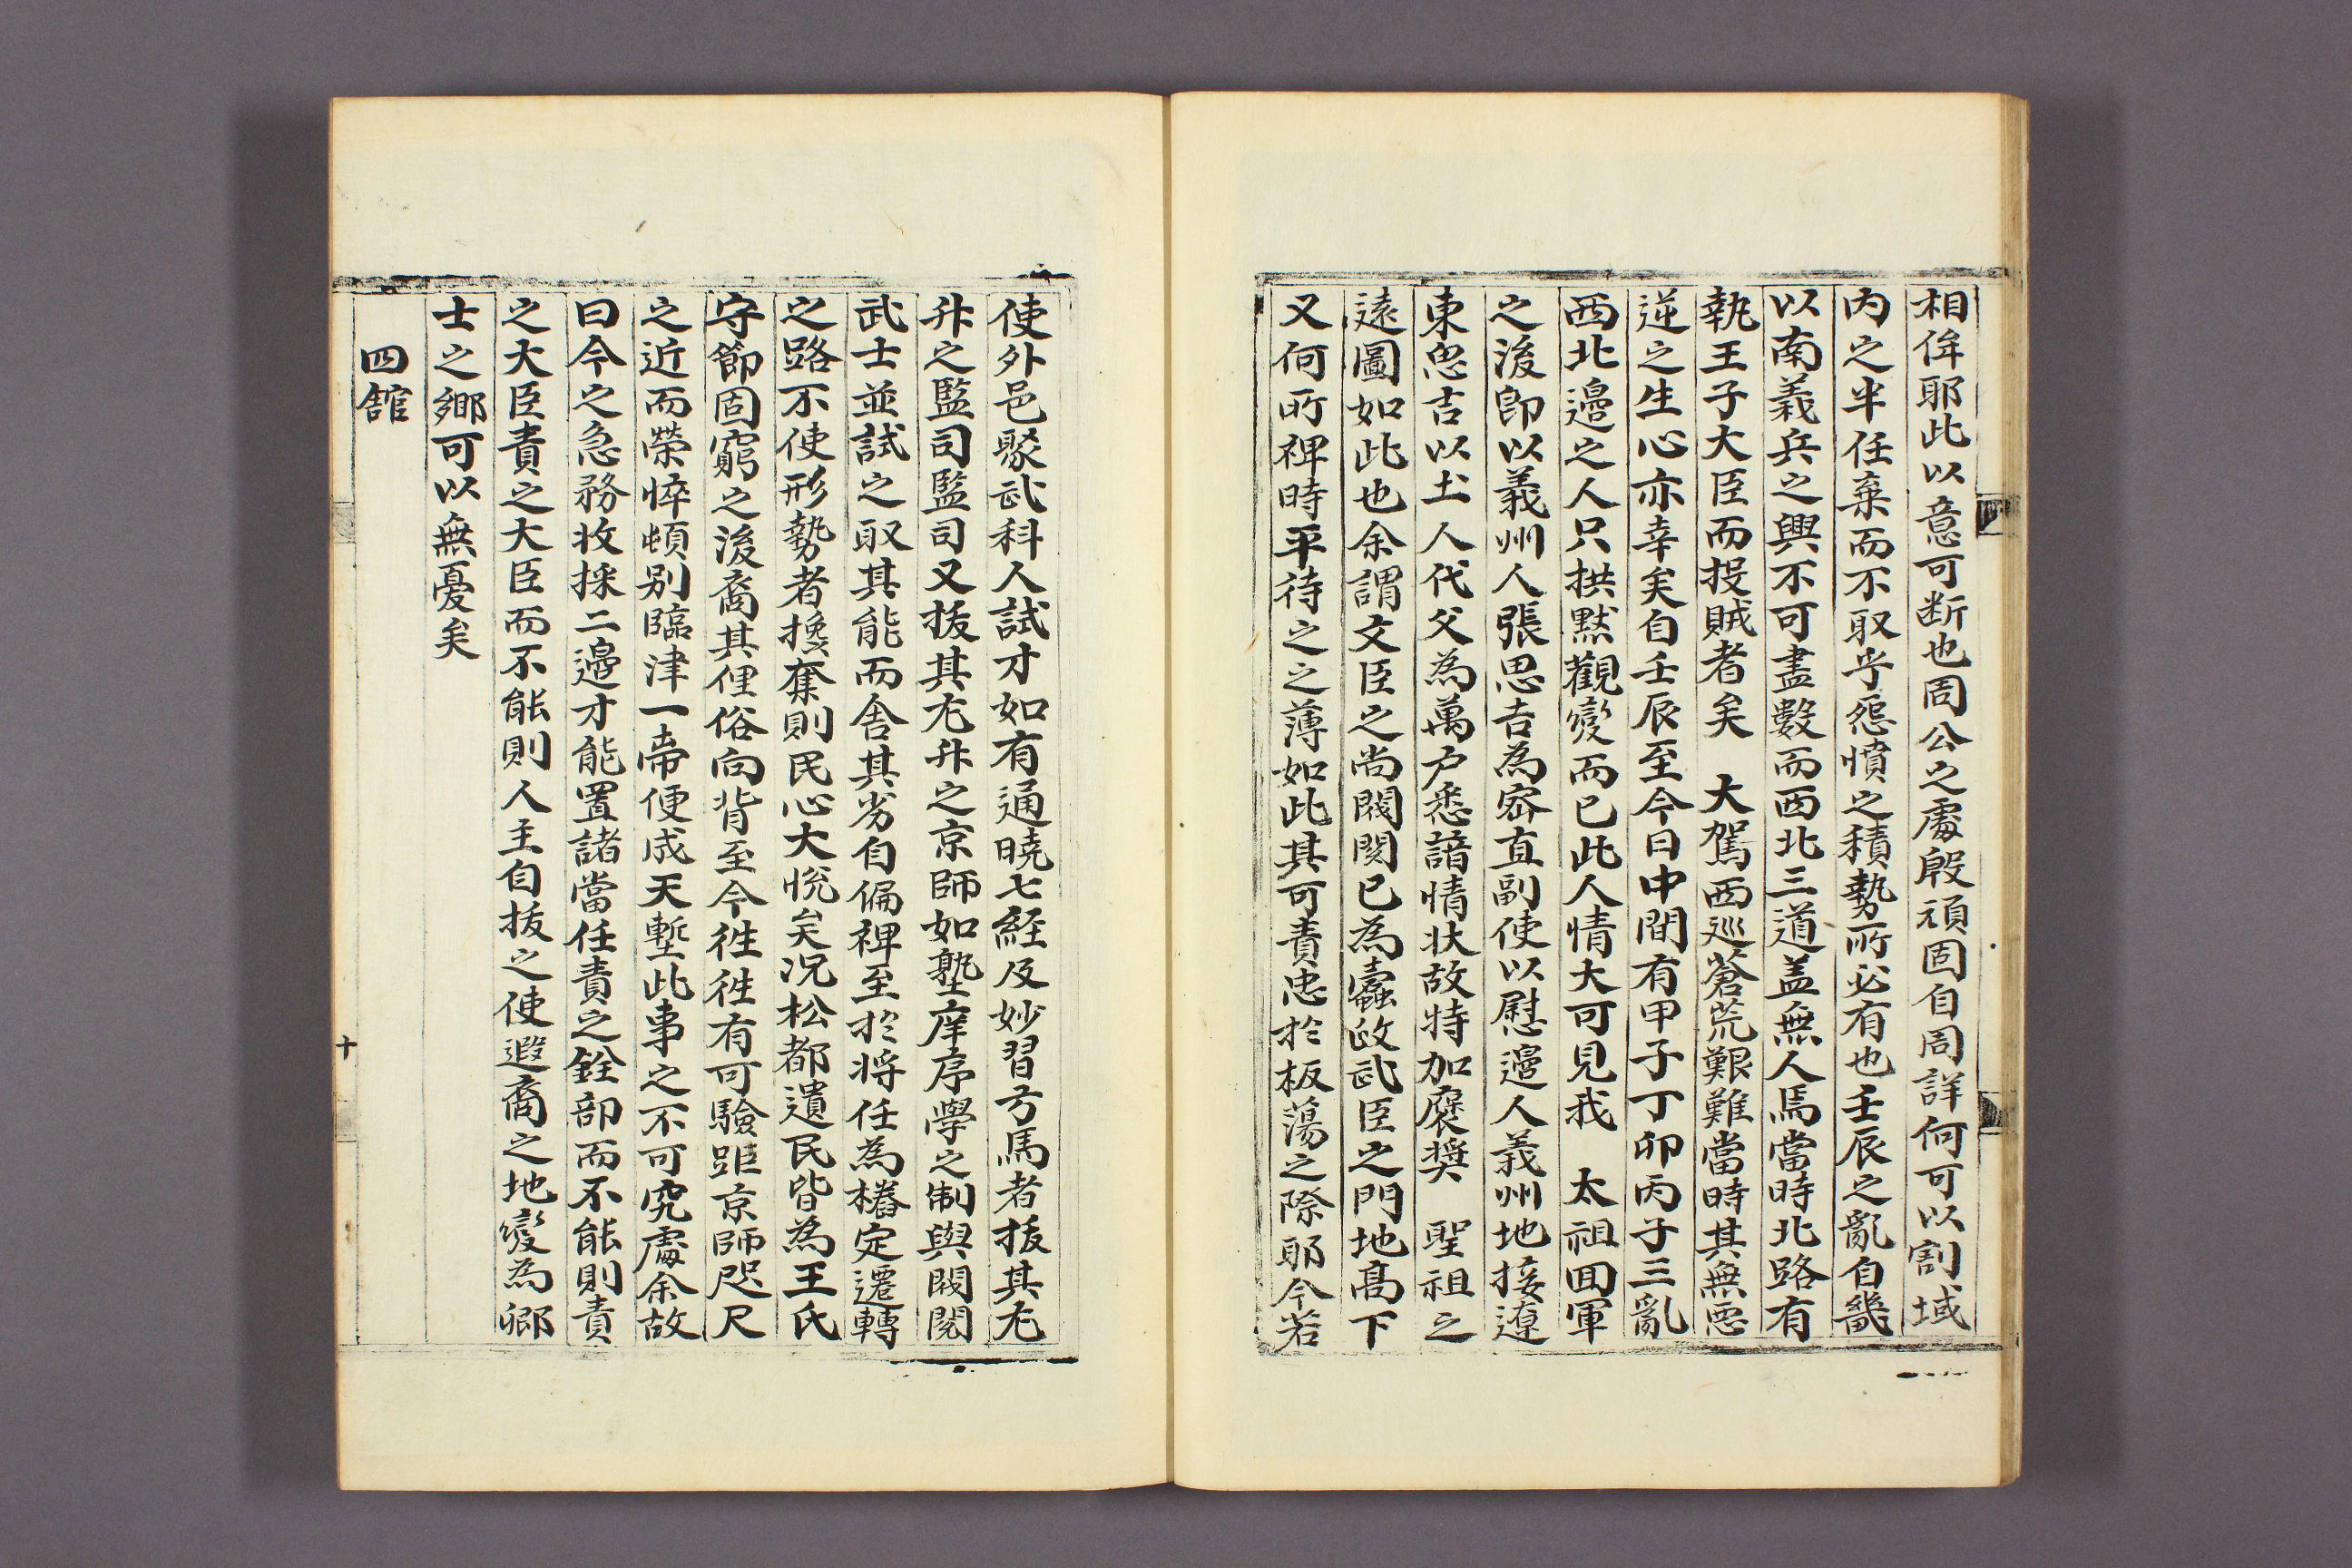 相侔耶此以意可断也周公之處殷頑固自周詳何可以割域
内之半任棄而不取乎怨憤之積勢所必有也壬辰之亂自畿
以南義兵之興不可盡數而西北三道盖無人焉當時北路有
執王子大臣而投賊者矣　大駕西巡蒼荒艱難當時其無惡
逆之生心亦幸矣自壬辰至今日中間有甲子丁卯丙子三亂
西北邊之人只拱黙觀變而已此人情大可見我　太祖囬軍
之後即以義州人張思吉為宻直副使以慰邊人義州地接遼
東思吉以土人代父為萬户悉諳情状故特加褒奬　聖祖之
遠圖如此也余謂文臣之尚閥閱已為蠧政武臣之門地髙下
又何所裨時平待之之薄如此其可責忠於板蕩之際耶今若
使外邑聚武科人試才如有通曉七経及妙習弓馬者拔其尤
升之監司監司又拔其尤升之京師如塾庠序學之制與閥閱
武士並試之取其能而舍其劣自偏裨至於将任為樁定遷轉
之路不使形勢者攙奪則民心大悦矣况松都遺民皆為王氏
守節固窮之後裔其俚俗向背至今徃徃有可驗距京師咫尺
之近而榮悴頓别臨津一帝便成天塹此事之不可究處余故
曰今之急務收採二邊才能置諸當任責之銓部而不能則責
之大臣責之大臣而不能則人主自拔之使遐裔之地變為卿
士之鄉可以無憂矣
四舘
十